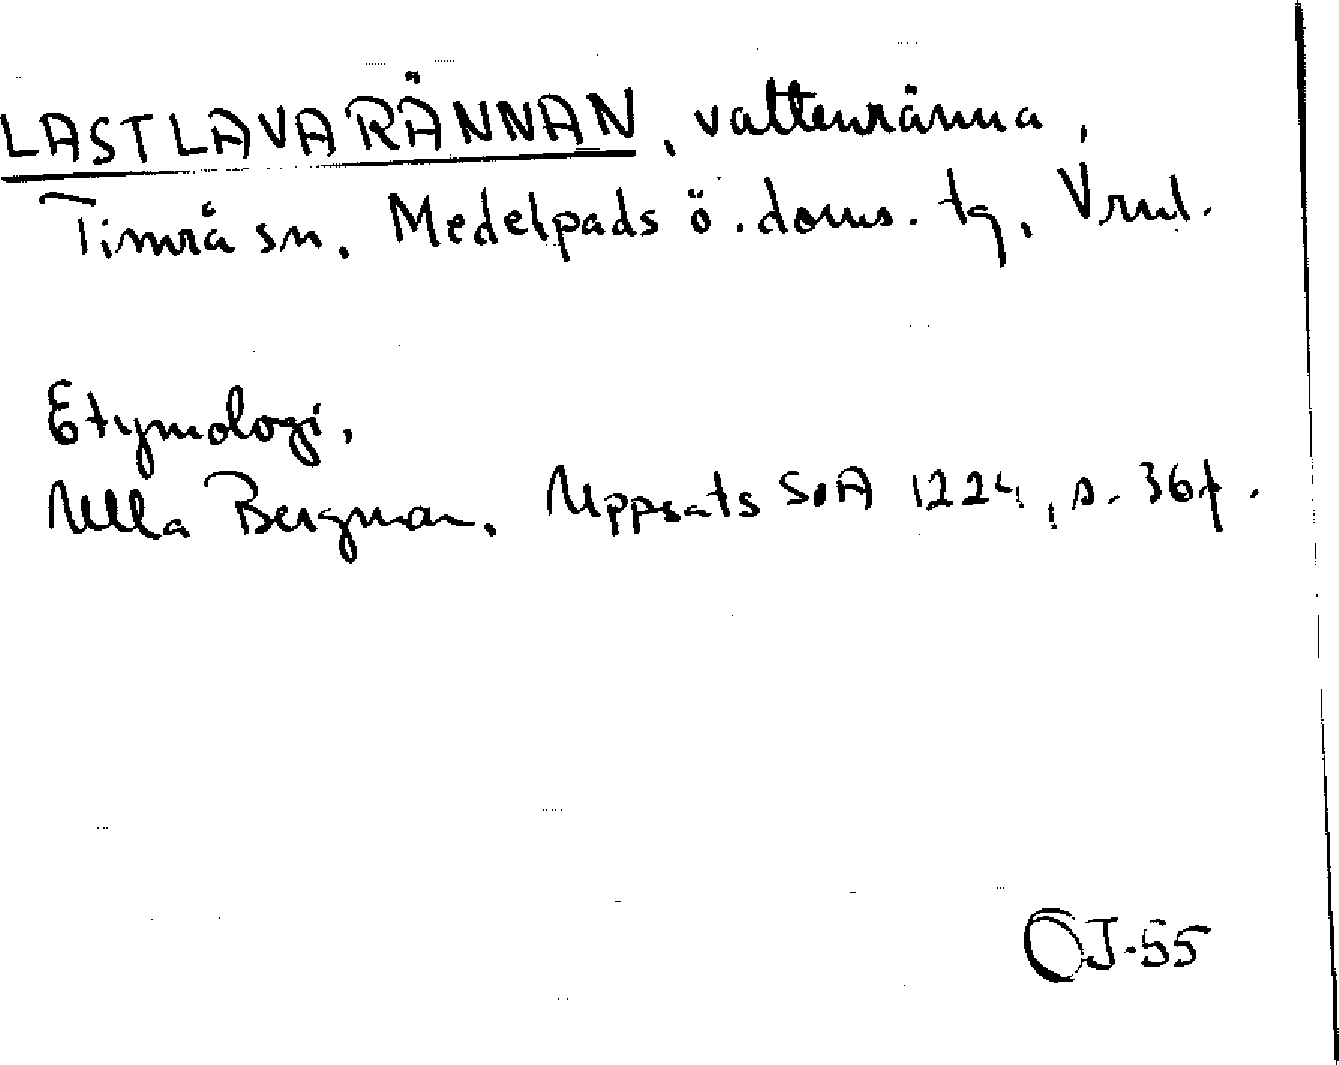 LASTLAVARÄNNAN, vattenränna,
Timrå sn, Medelpads ö. doms. tg, Vrnl.
Etymologi,
Ulla Bergman, Uppsats SOA 1224, s. 36f.
OJ-55